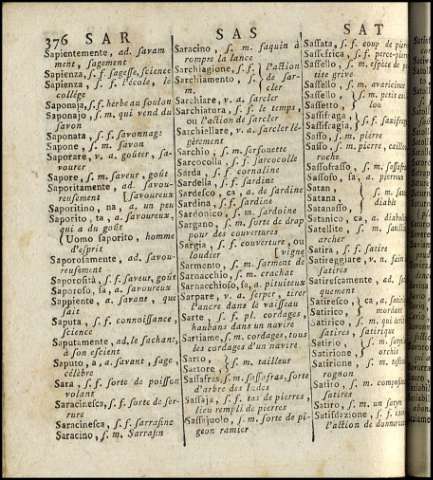 376 SAR
Sapientemente, ad. savam
ment, sagement
Sapienza, s. f. sagesse, science
Sapienza, s. f. l'école, le
collége
Saponaja, s. f. herbe au foulon
Saponajo, s. m. qui vend du
savon
Saponata, s. f. savonnage
Sapone, s. m. savon
Saporare, v. a. goûter, sa-
vourer
Sapore, s. m. saveur, goût
Saporitamente, ad. savou-
reusement [savoureux
Saporitino, na, a. un peu
Saporito, ta, a. savoureux,
qui a du goût
(Uomo saporito, homme
d'esprit
Saporosamente, ad. savou-
reusement
Saporosità, s. f. saveur, goût
Saporoso, sa, a. savoureux
Sappiente, a. savant, qui
sait
Saputa, s. f. connoissance,
science
Saputamente, ad. le sachant,
à son escient
Saputo, a, a. savant, sage,
célèbre
Sara, s. f. sorte de poisson
volant
Saracinesca, s. f. sorte de ser-
rure
Saracinesca, s. f. sarrasine
Saracino, s. m. Sarrasin
SAS
Saracino, s. m. faquin à
rompre la lance
Sarchiagione, s. f. l'action
Sarchiamento, s. m. de sar-
cler
Sarchiare, v. a. sarcler
Sarchiatura, s. f. le temps,
ou l'action de sarcler
Sarchiellare, v. a. sarcler lé-
gèrement
Sarchio, s. m. serfouette
Sarcocolla, s. f. sarcocolle
Sarda, s. f. cornaline
Sardella, s. f. sardine
Sardesco, ca, a. de sardine
Sardina, s. f. sardine
Sardonico, s. m. sardoine
Sargano, s. m. sorte de drap
pour des couvertures
Sargia, s. f. couverture, ou
loudier [vigne
Sarmento, s. m. sarment de
Sarnacchio, s. m. crachat
Sarnacchioso, sa, a. pituiteux
Sarpare, v. a. serper, tirer
l'ancre dans le vaisseau
Sarte, s. f. pl. cordages,
haubans dans un navire
Sartiame, s. m. cordages, tous
les cordages d'un navire
Sarto, s. m. tailleur
Sartore,
Sassafras, s. m. sassafras, sorte
d'arbre des Indes
Sassaja, s. f. tas de pierres,
lieu rempli de pierres
Sassajuolo, s. m. sorte de pi-
geon ramier
SAT
Sassata, s. f. coup de pier
Sassefrica, s. f. perce-pier
Sassello, s. m. espèce de p
tite grive
Sassello, s. m. avaricieux
Sasselto, s. m. petit cail
Sassetto, lou
Sassifraga, s. f. saxifrag
Sassifragia,
Sasso, s. m. pierre
Sasso, s. m. pierre, caillou
roche
Sassofrasso, s. m. sassafra
Sassoso, sa, a. pierreux
Satan,
Satana, s. m. Satan
Satanasso, diabl
Satanico, ca, a. diaboli
Satellite, s. m. satellit
archer
Satira, s. f. satire
Satireggiare, v. n. fair
satires
Satirescamente, ad. sat
sement
Satiresco, ca, a. satiri
Satirico, mordant
Satirico, s. m. qui écrit
satires, satirique
Satirio, s. m.
Satirione, orchis
Satirione, s. m. testi
rognon
Satiro, s. m. composeur
satires
Satiro, s. m. un satyre
Satisdazione, s. f. caut
l'action de donner cau